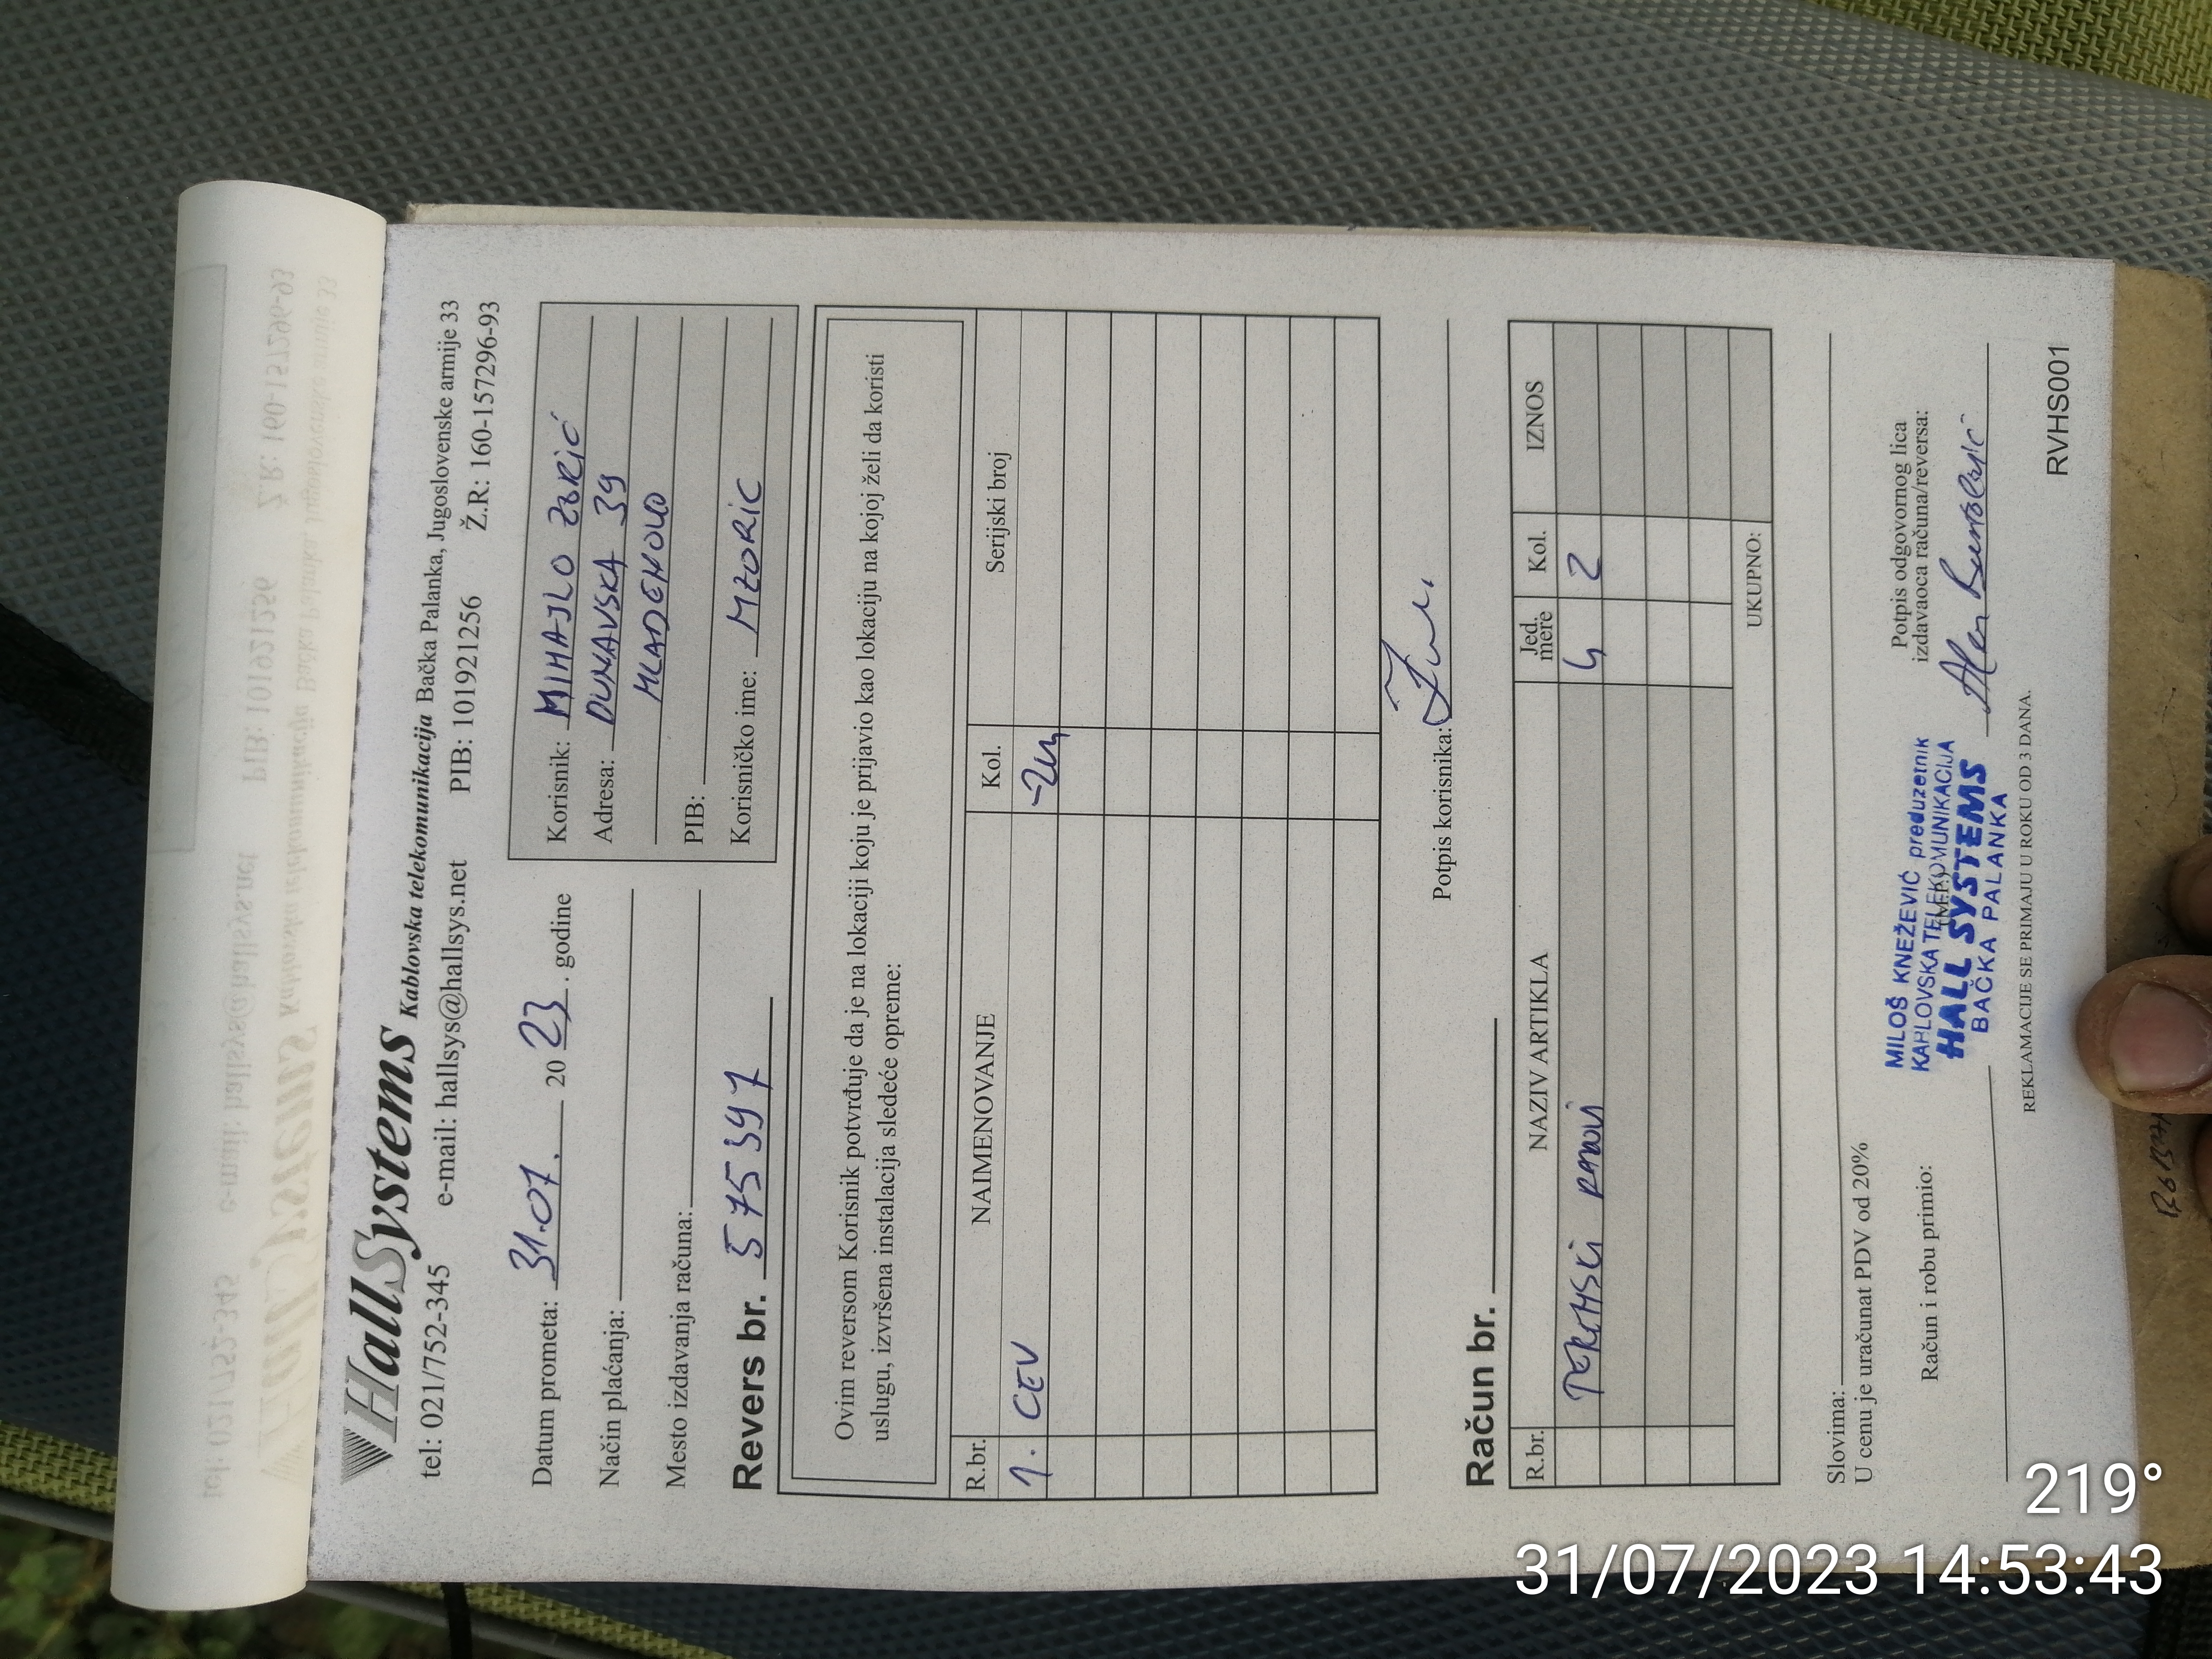 HallSystems Kablovska telekomunikacija Bačka Palanka, Jugoslovenske armije 33
tel: 021/752-345 e-mail: hallsys@hallsys.net PIB: 101921256 Ž.R: 160-157296-93
Datum prometa: 31.07. 2023. godine
Način plaćanja:
Mesto izdavanja računa:
Revers br. 575397
Korisnik: MIHAJLO ZORIĆ
Adresa: DUNAVSKA 39
MLADENOVO
PIB:
Korisničko ime: MZORIC
Ovim reversom Korisnik potvrđuje da je na lokaciji koju je prijavio kao lokaciju na kojoj želi da koristi
uslugu, izvršena instalacija sledeće opreme:
R.br. NAIMENOVANJE Kol. Serijski broj
1. CEV 2m
Potpis korisnika:
Račun br.
R.br. NAZIV ARTIKLA Jed. mere Kol. IZNOS
TERENSKI RADOVI 2
UKUPNO:
Slovima:
U cenu je uračunat PDV od 20%
Račun i robu primio:
MILOŠ KNEŽEVIĆ preduzetnik
KABLOVSKA TELEKOMUNIKACIJA
HALL SYSTEMS
BAČKA PALANKA
Potpis odgovornog lica
izdavaoca računa/reversa:
REKLAMACIJE SE PRIMAJU U ROKU OD 3 DANA.
RVHS001
219°
31/07/2023 14:53:43